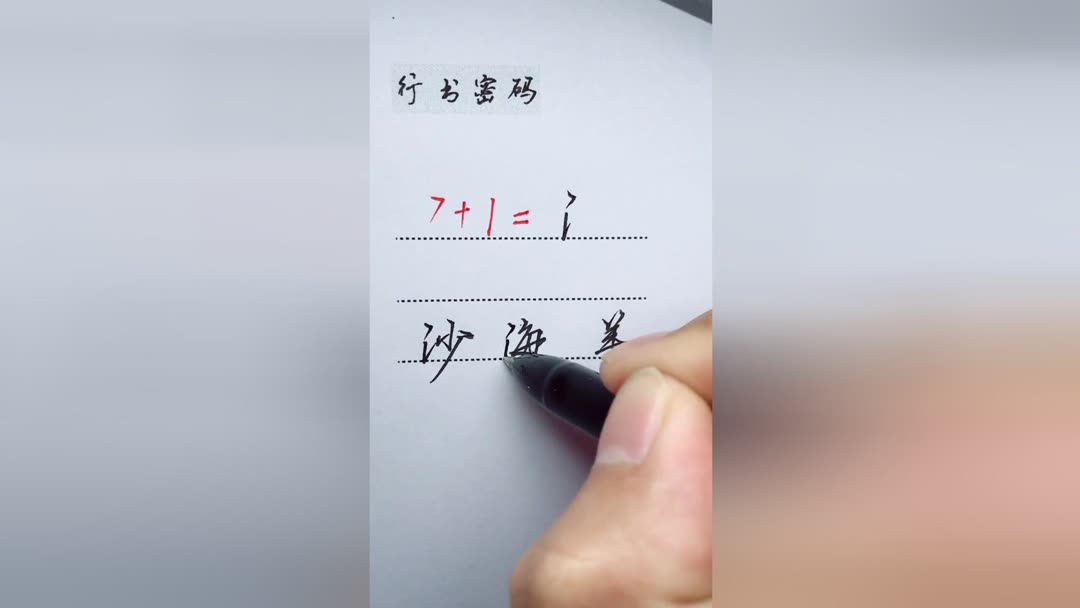 行书密码
7+1=氵
沙 海